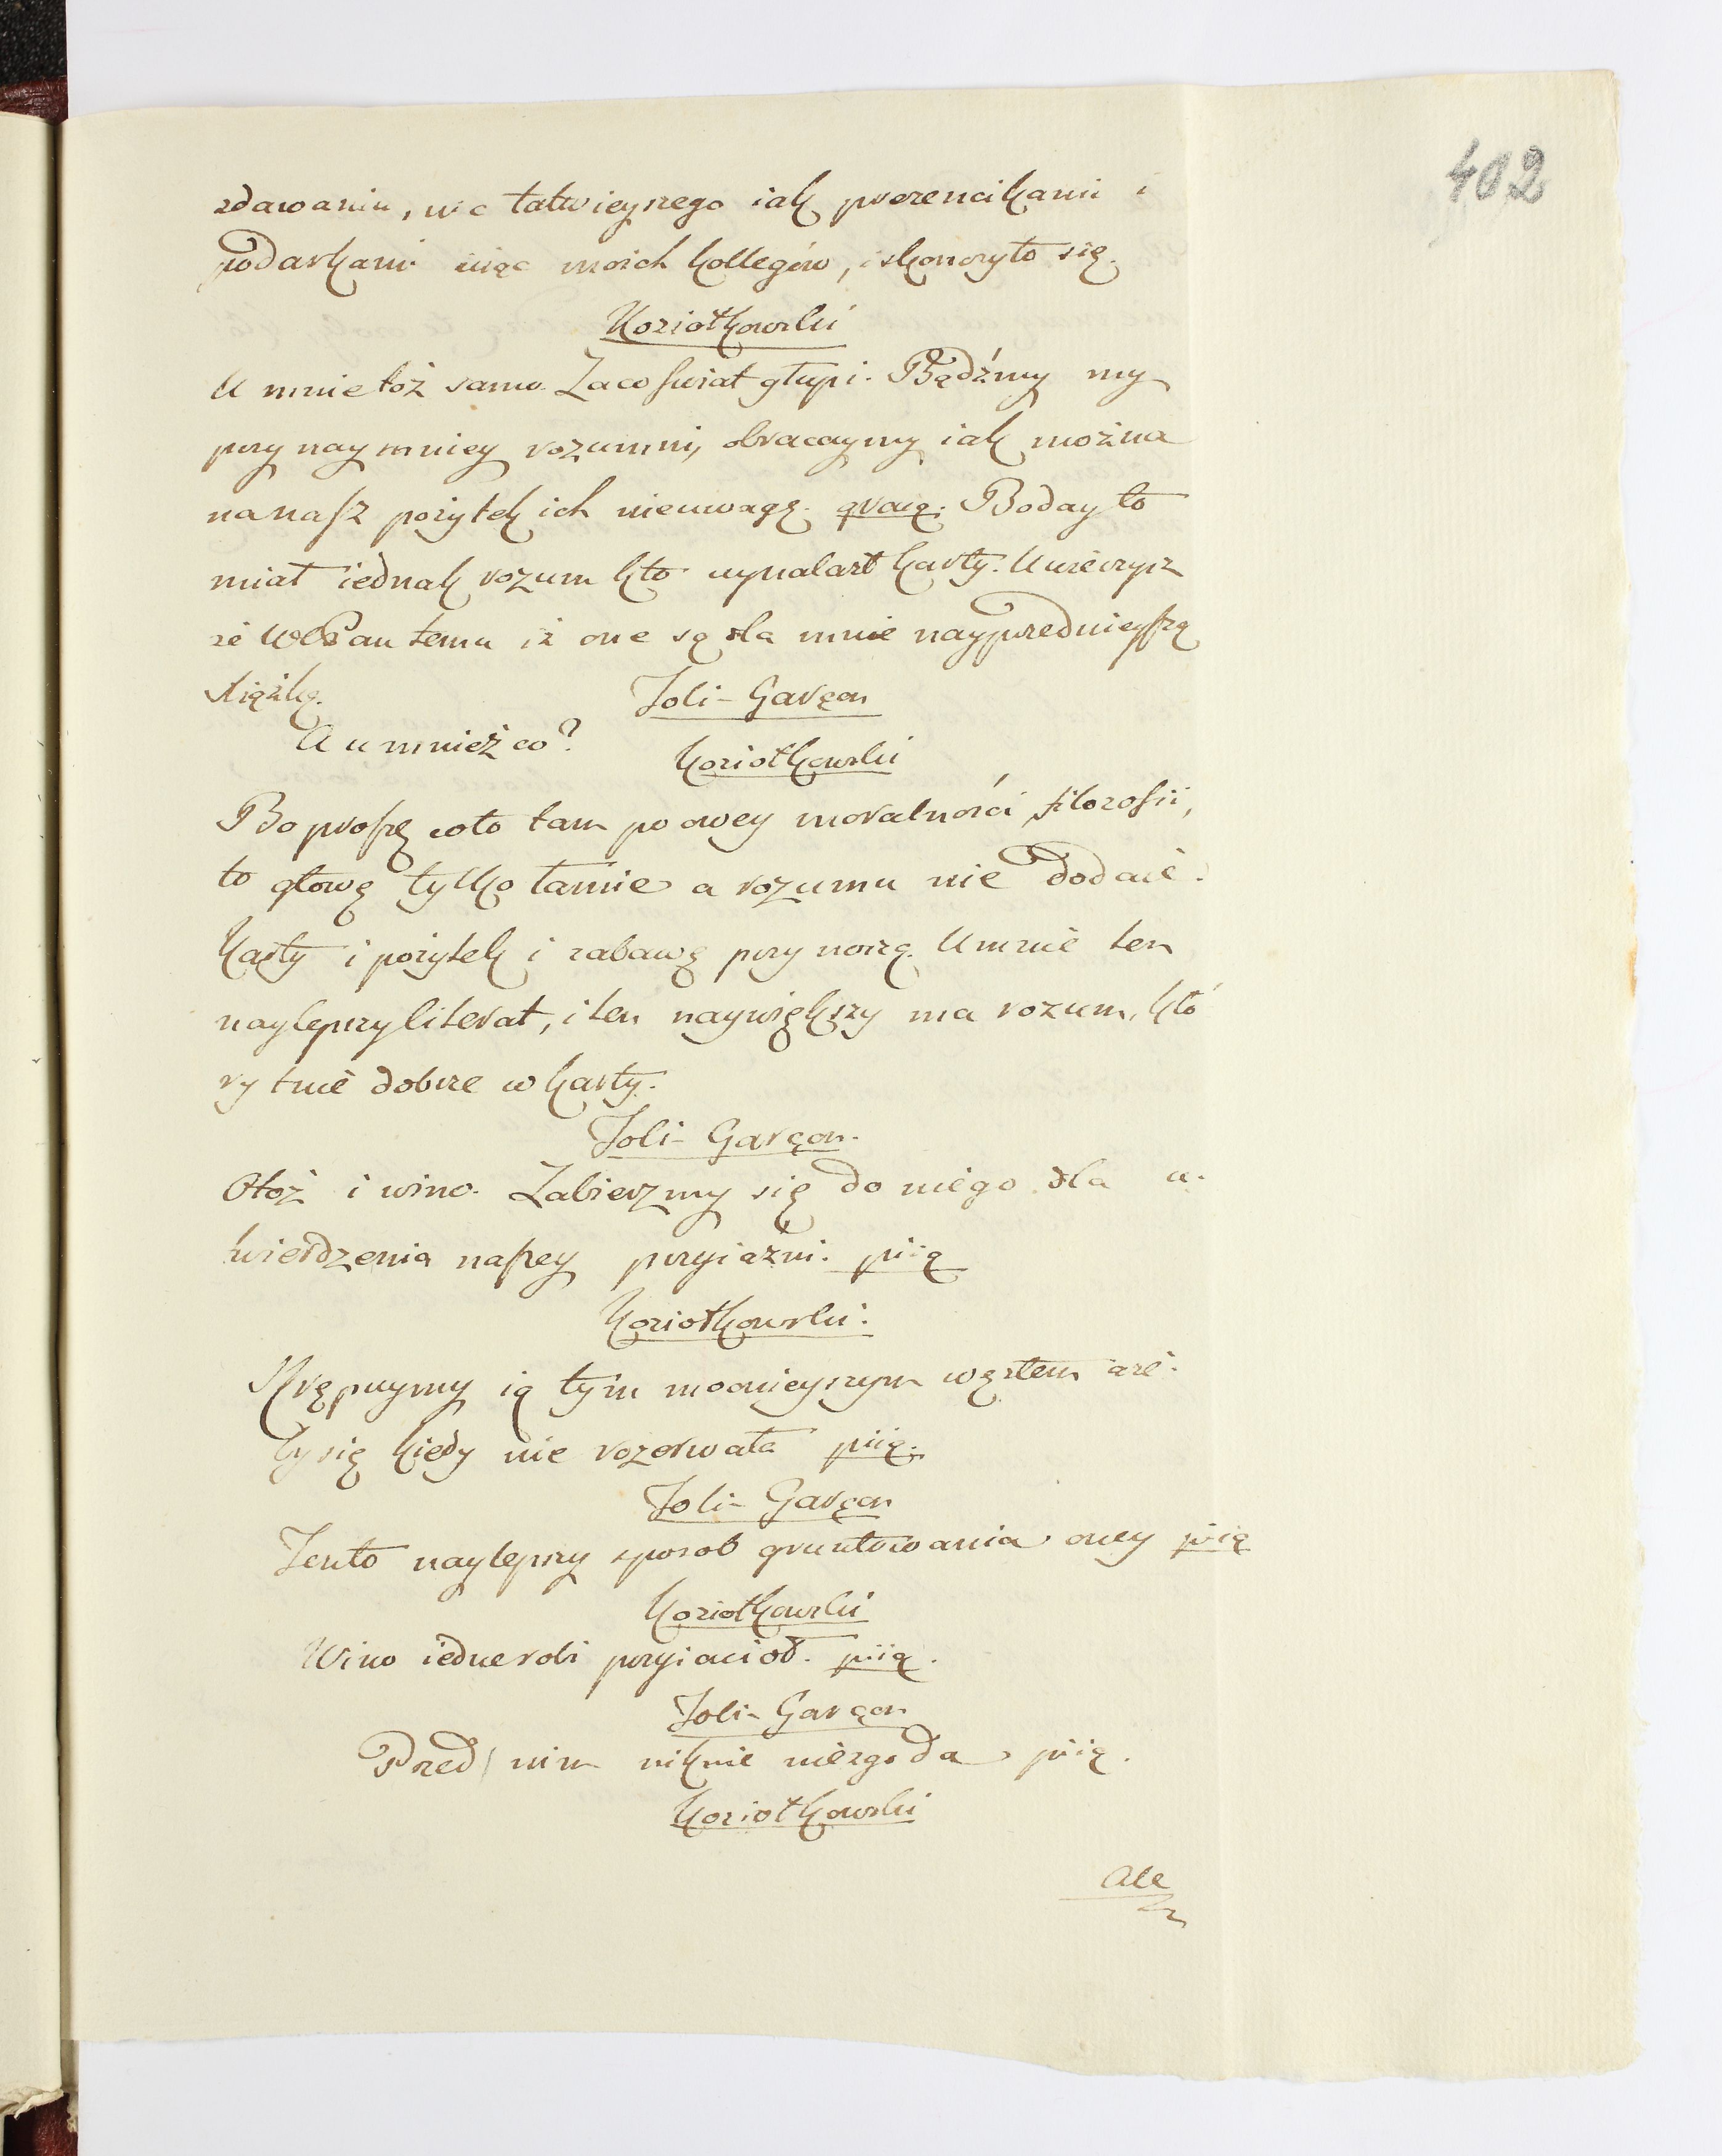 402
zdawaniu, nic łatwieyszego iak prezencikami i
podarkami uiąc moich kollegów, i skonczyło się.
Koziołkowski
U mnie toż samo. Za co świat głupi. Bądźmy my
przynaymniey rozumni, obracaymy iak można
na nasz pożytek ich nieuwagę. graią. Boday to
miał iednak rozum kto wynalazł karty. Uwierzysz
że WcPan temu iż one są dla mnie nayprzednieyszą
książką.
Joli-Garçon
A u mnież co?
Koziołkowski
Bo proszę co to tam po owey moralności, filozofii,
to głowę tylko łamie a rozumu nie dodaie.
Karty i pożytek i zabawę przynoszą. U mnie ten
naylepszy literat, i ten naywiększy ma rozum, któ
ry tnie dobrze w karty.
Joli-Garçon.
Otoż i wino. Zabierzmy się do niego dla u-
twierdzenia naszey przyiaźni. piią
Koziołkowski.
Skrępuymy ią tym mocnieyszym węzłem aże-
by się kiedy nie rozerwała piią.
Joli-Garçon
Jest to naylepszy sposob gruntowania owey piią
Koziołkowski
Wino iedne robi przyiacioł. piią.
Joli-Garçon
Przed nim niknie niezgoda piią.
Koziołkowski
Ale